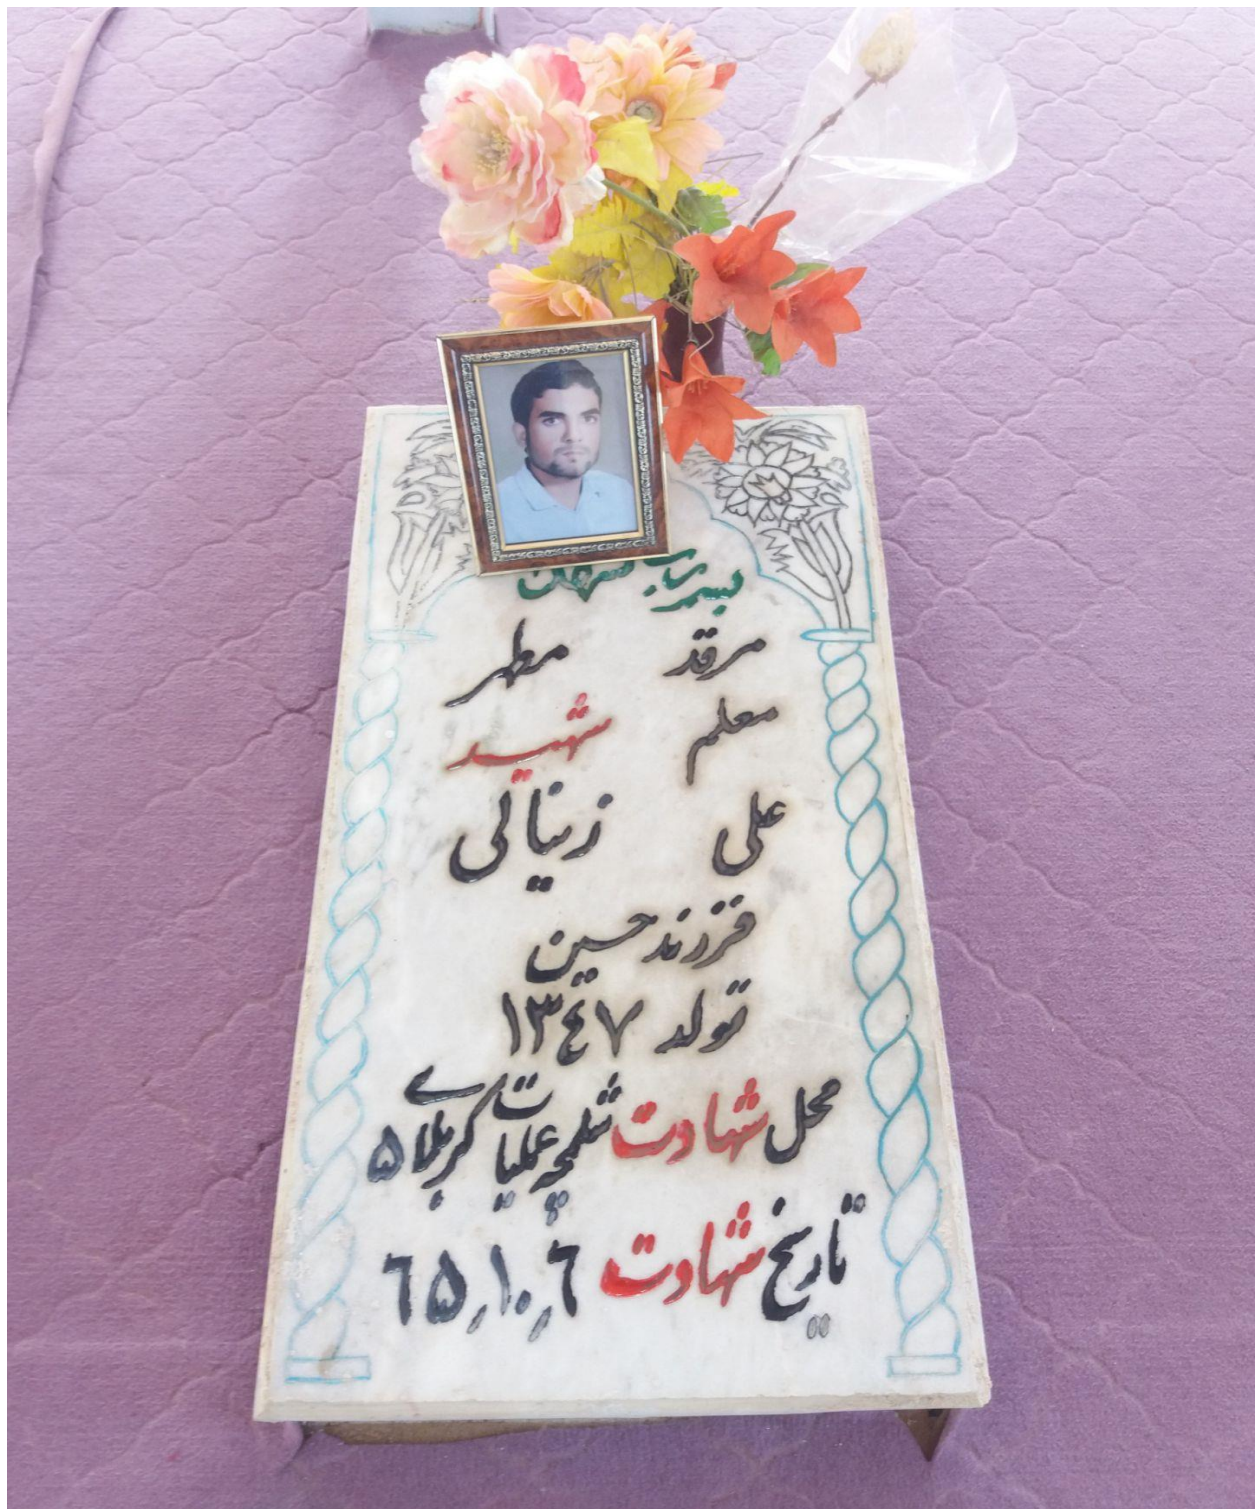 مرقد مطهر
معلم شهید
علی زینالی
فرزند حسین
تولد ۱۳٤۷
محل شهادت شلمچه عملیات کربلای ۵
تاریخ شهادت ٦ر۱۰ر٦۵